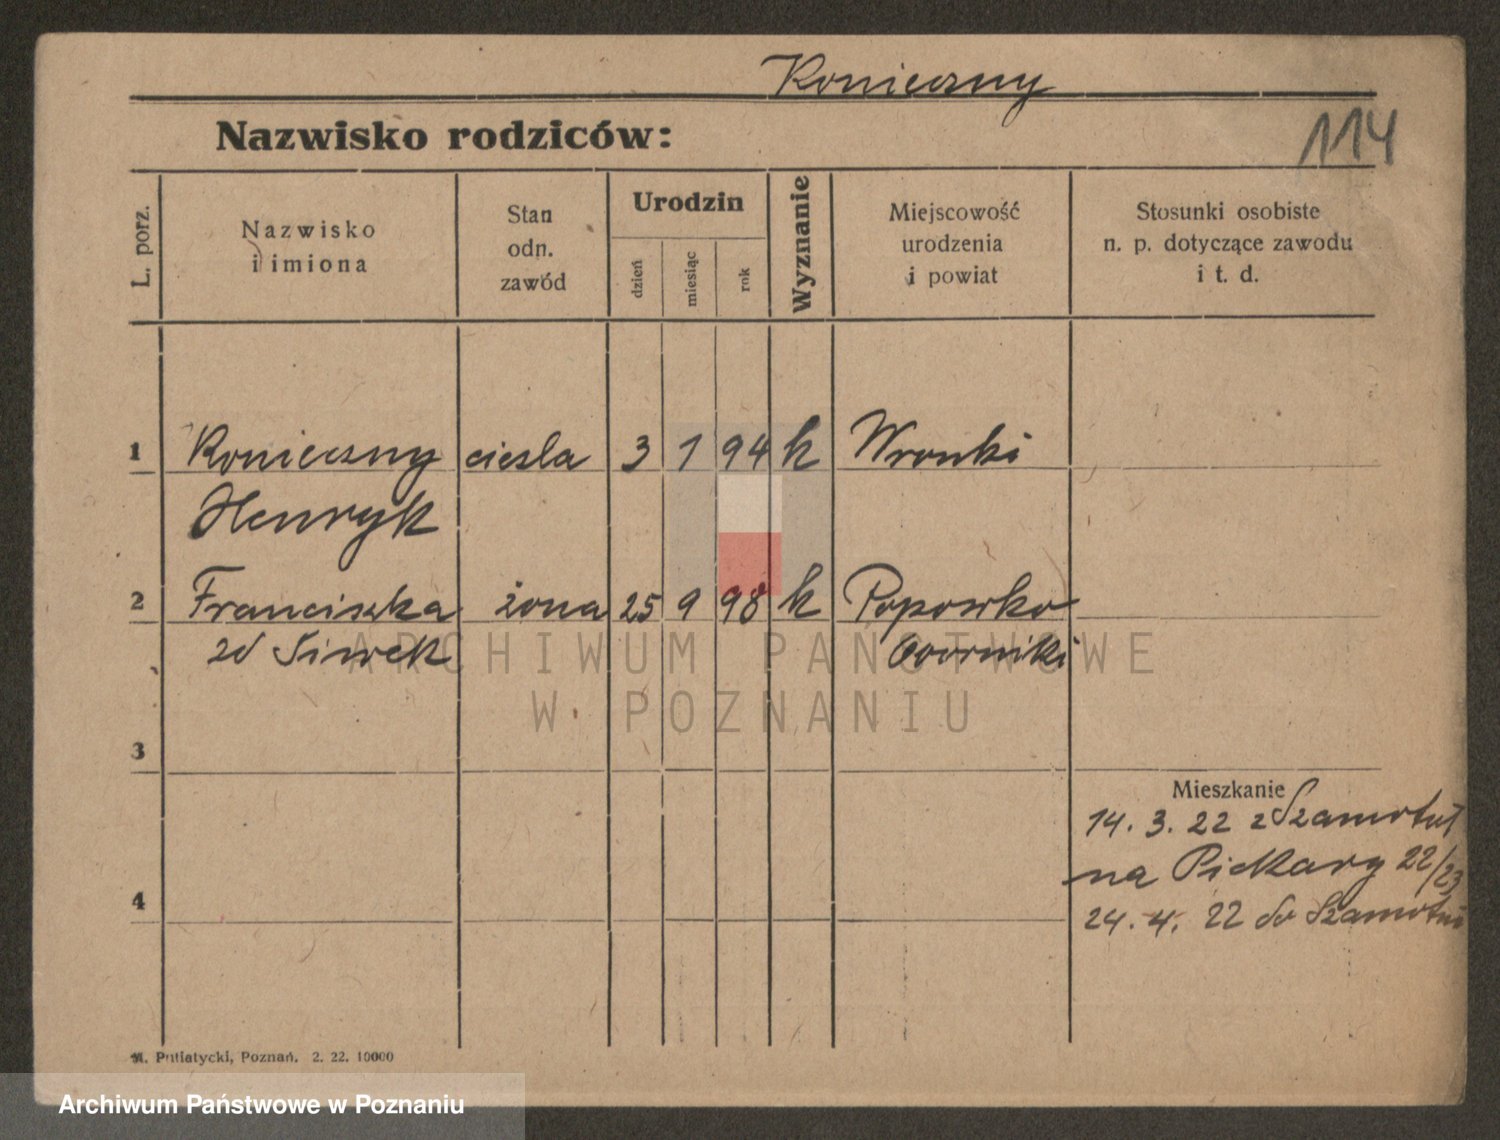 Konieczny
Nazwisko rodziców:
114
L. porz.
Nazwisko
i imiona
Stan
odn.
zawód
Urodzin
dzień
miesiąc
rok
Wyznanie
Miejscowość
urodzenia
i powiat
Stosunki osobiste
n. p. dotyczące zawodu
i t. d.
1 Konieczny ciesla 3 1 94 k Wronki
Henryk
2 Franciszka żona 25 9 98 k Popowko
zd Siwek Oborniki
3
Mieszkanie
14. 3. 22 z Szamotuł
na Piekary 22/23
4
24. 4. 22 do Szamotuł
M. Putiatycki, Poznań. 2. 22. 10000
ARCHIWUM PAŃSTWOWE
W POZNANIU
Archiwum Państwowe w Poznaniu